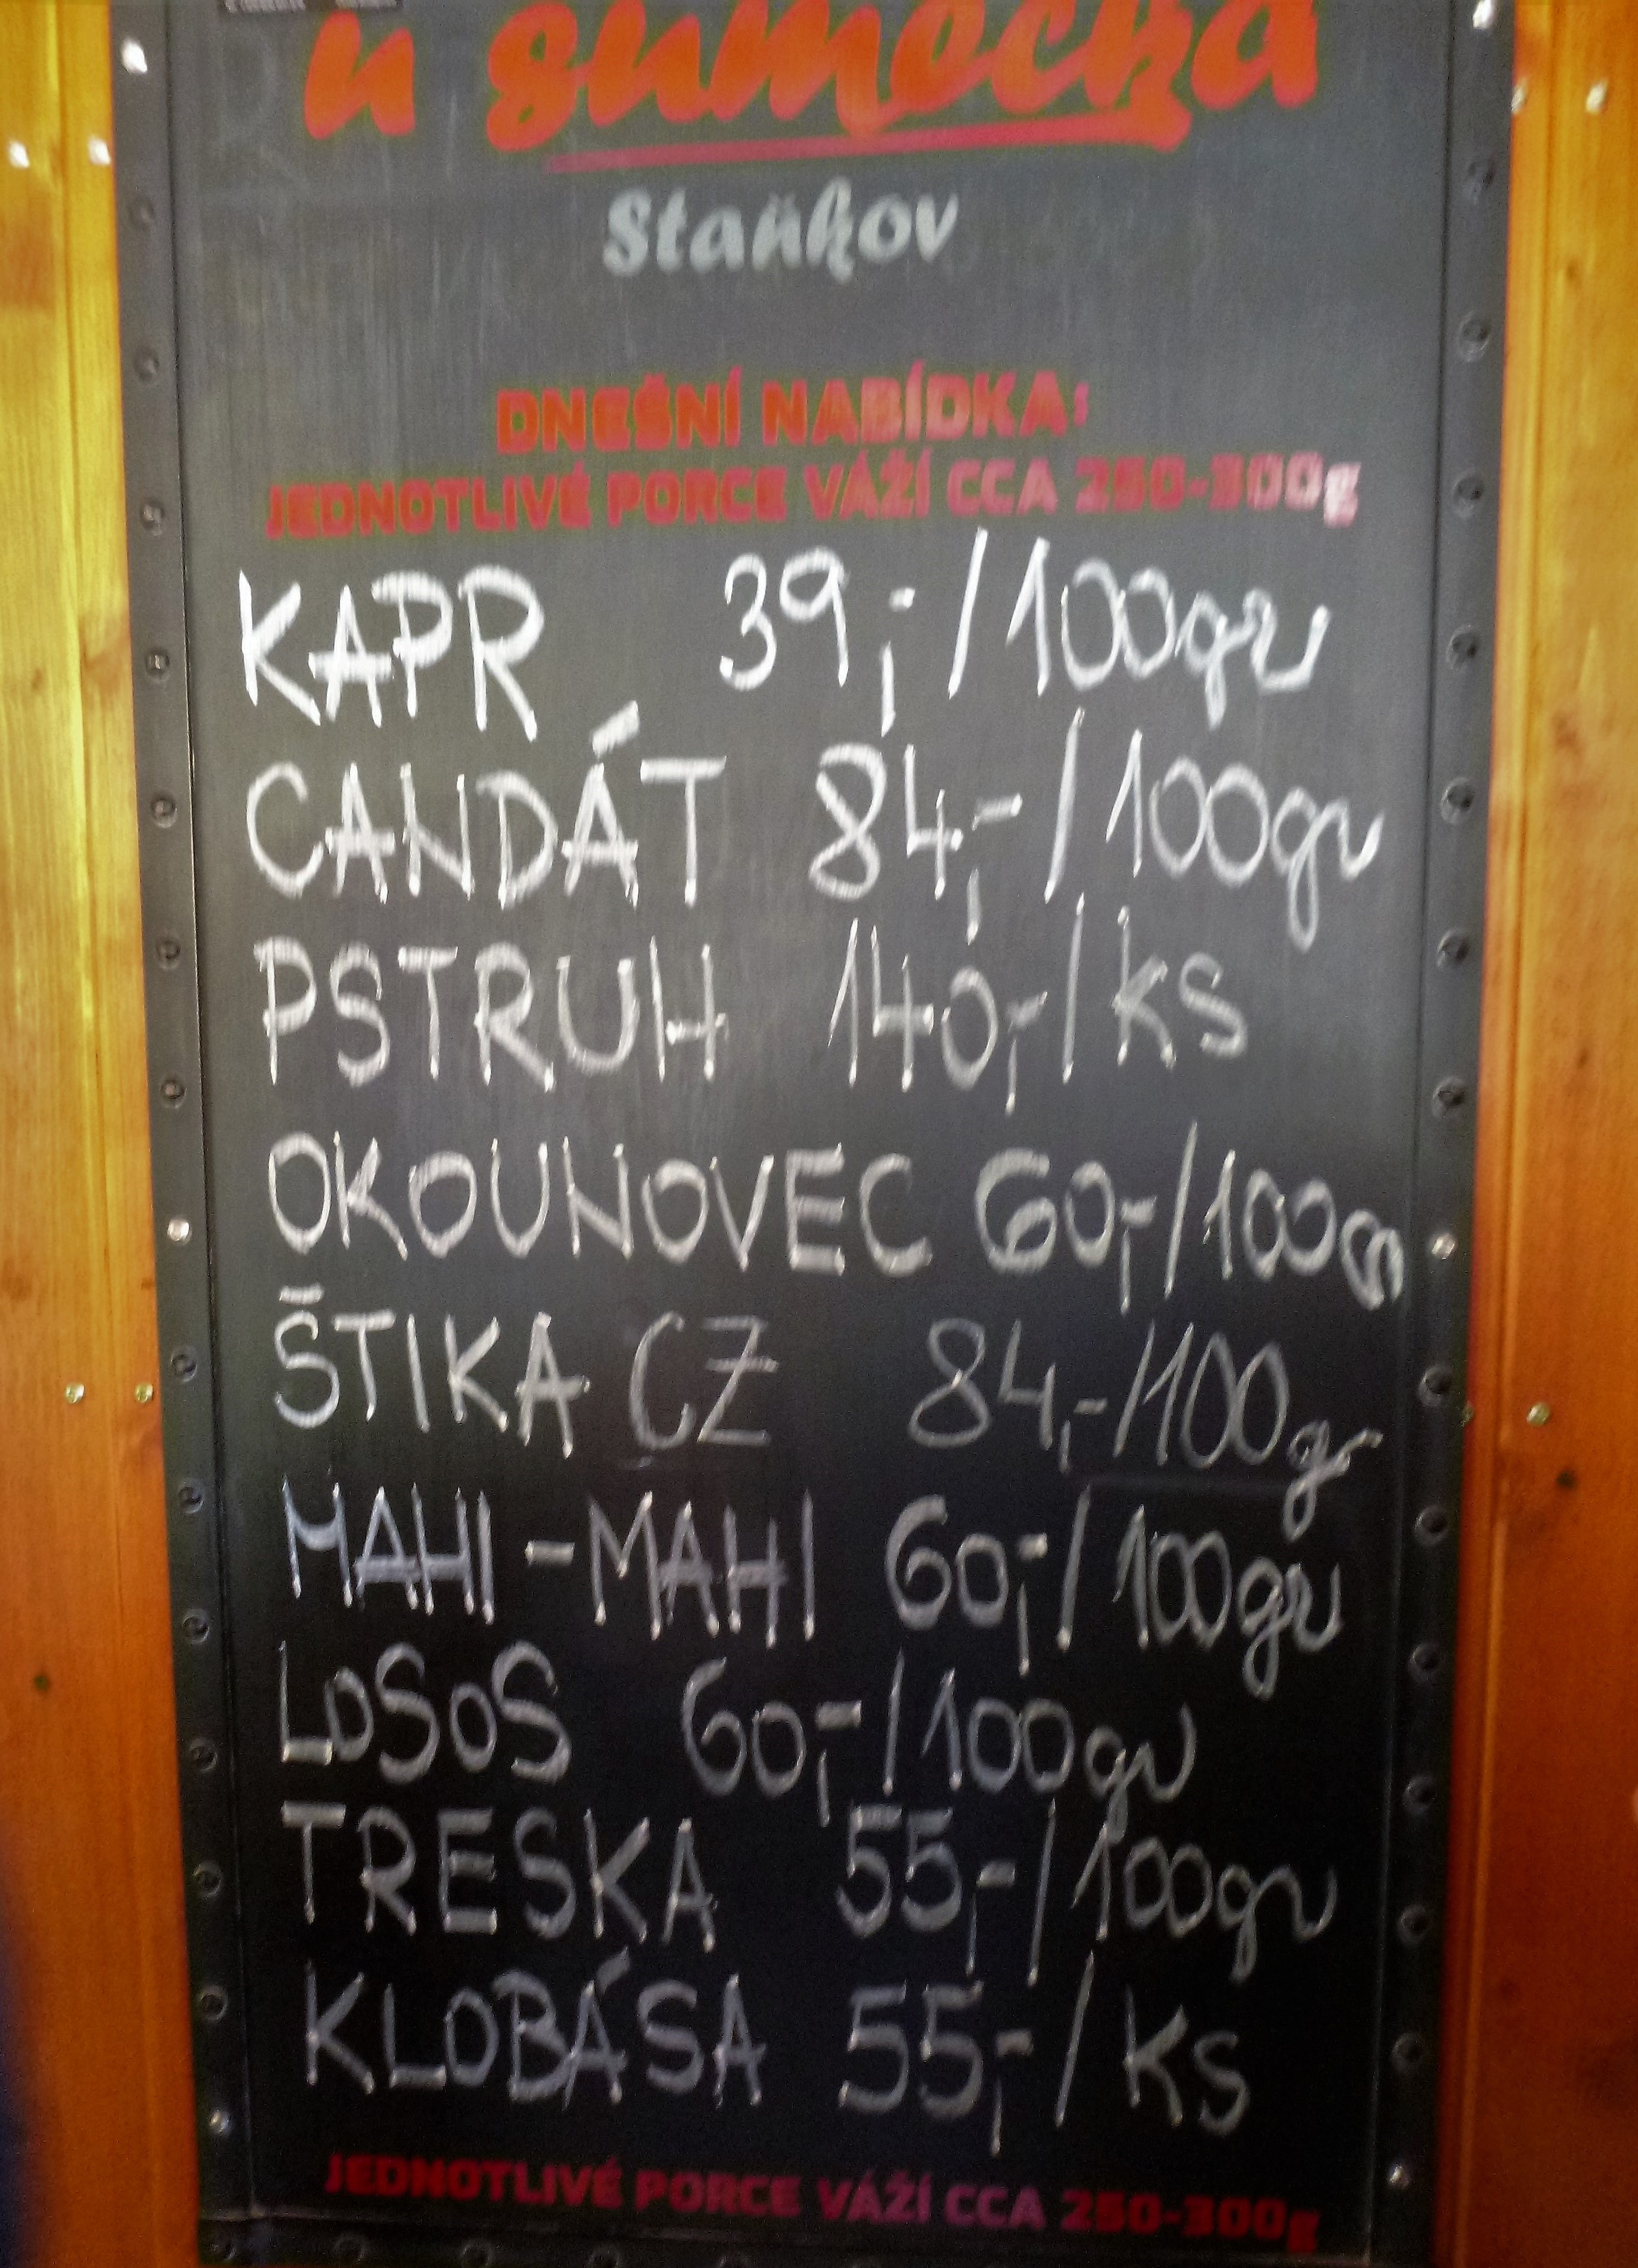 u sumečka
Staňkov
DNEŠNÍ NABÍDKA:
JEDNOTLIVÉ PORCE VÁŽÍ CCA 250-300g
KAPR 39,-/100gr
CANDÁT 84,-/100gr
PSTRUH 140,-/KS
OKOUNOVEC 60,-/100g
ŠTIKA CZ 84,-/100gr
MAHI-MAHI 60,-/100gr
LOSOS 60,-/100gr
TRESKA 55,-/100gr
KLOBÁSA 55,-/KS
JEDNOTLIVÉ PORCE VÁŽÍ CCA 250-300g